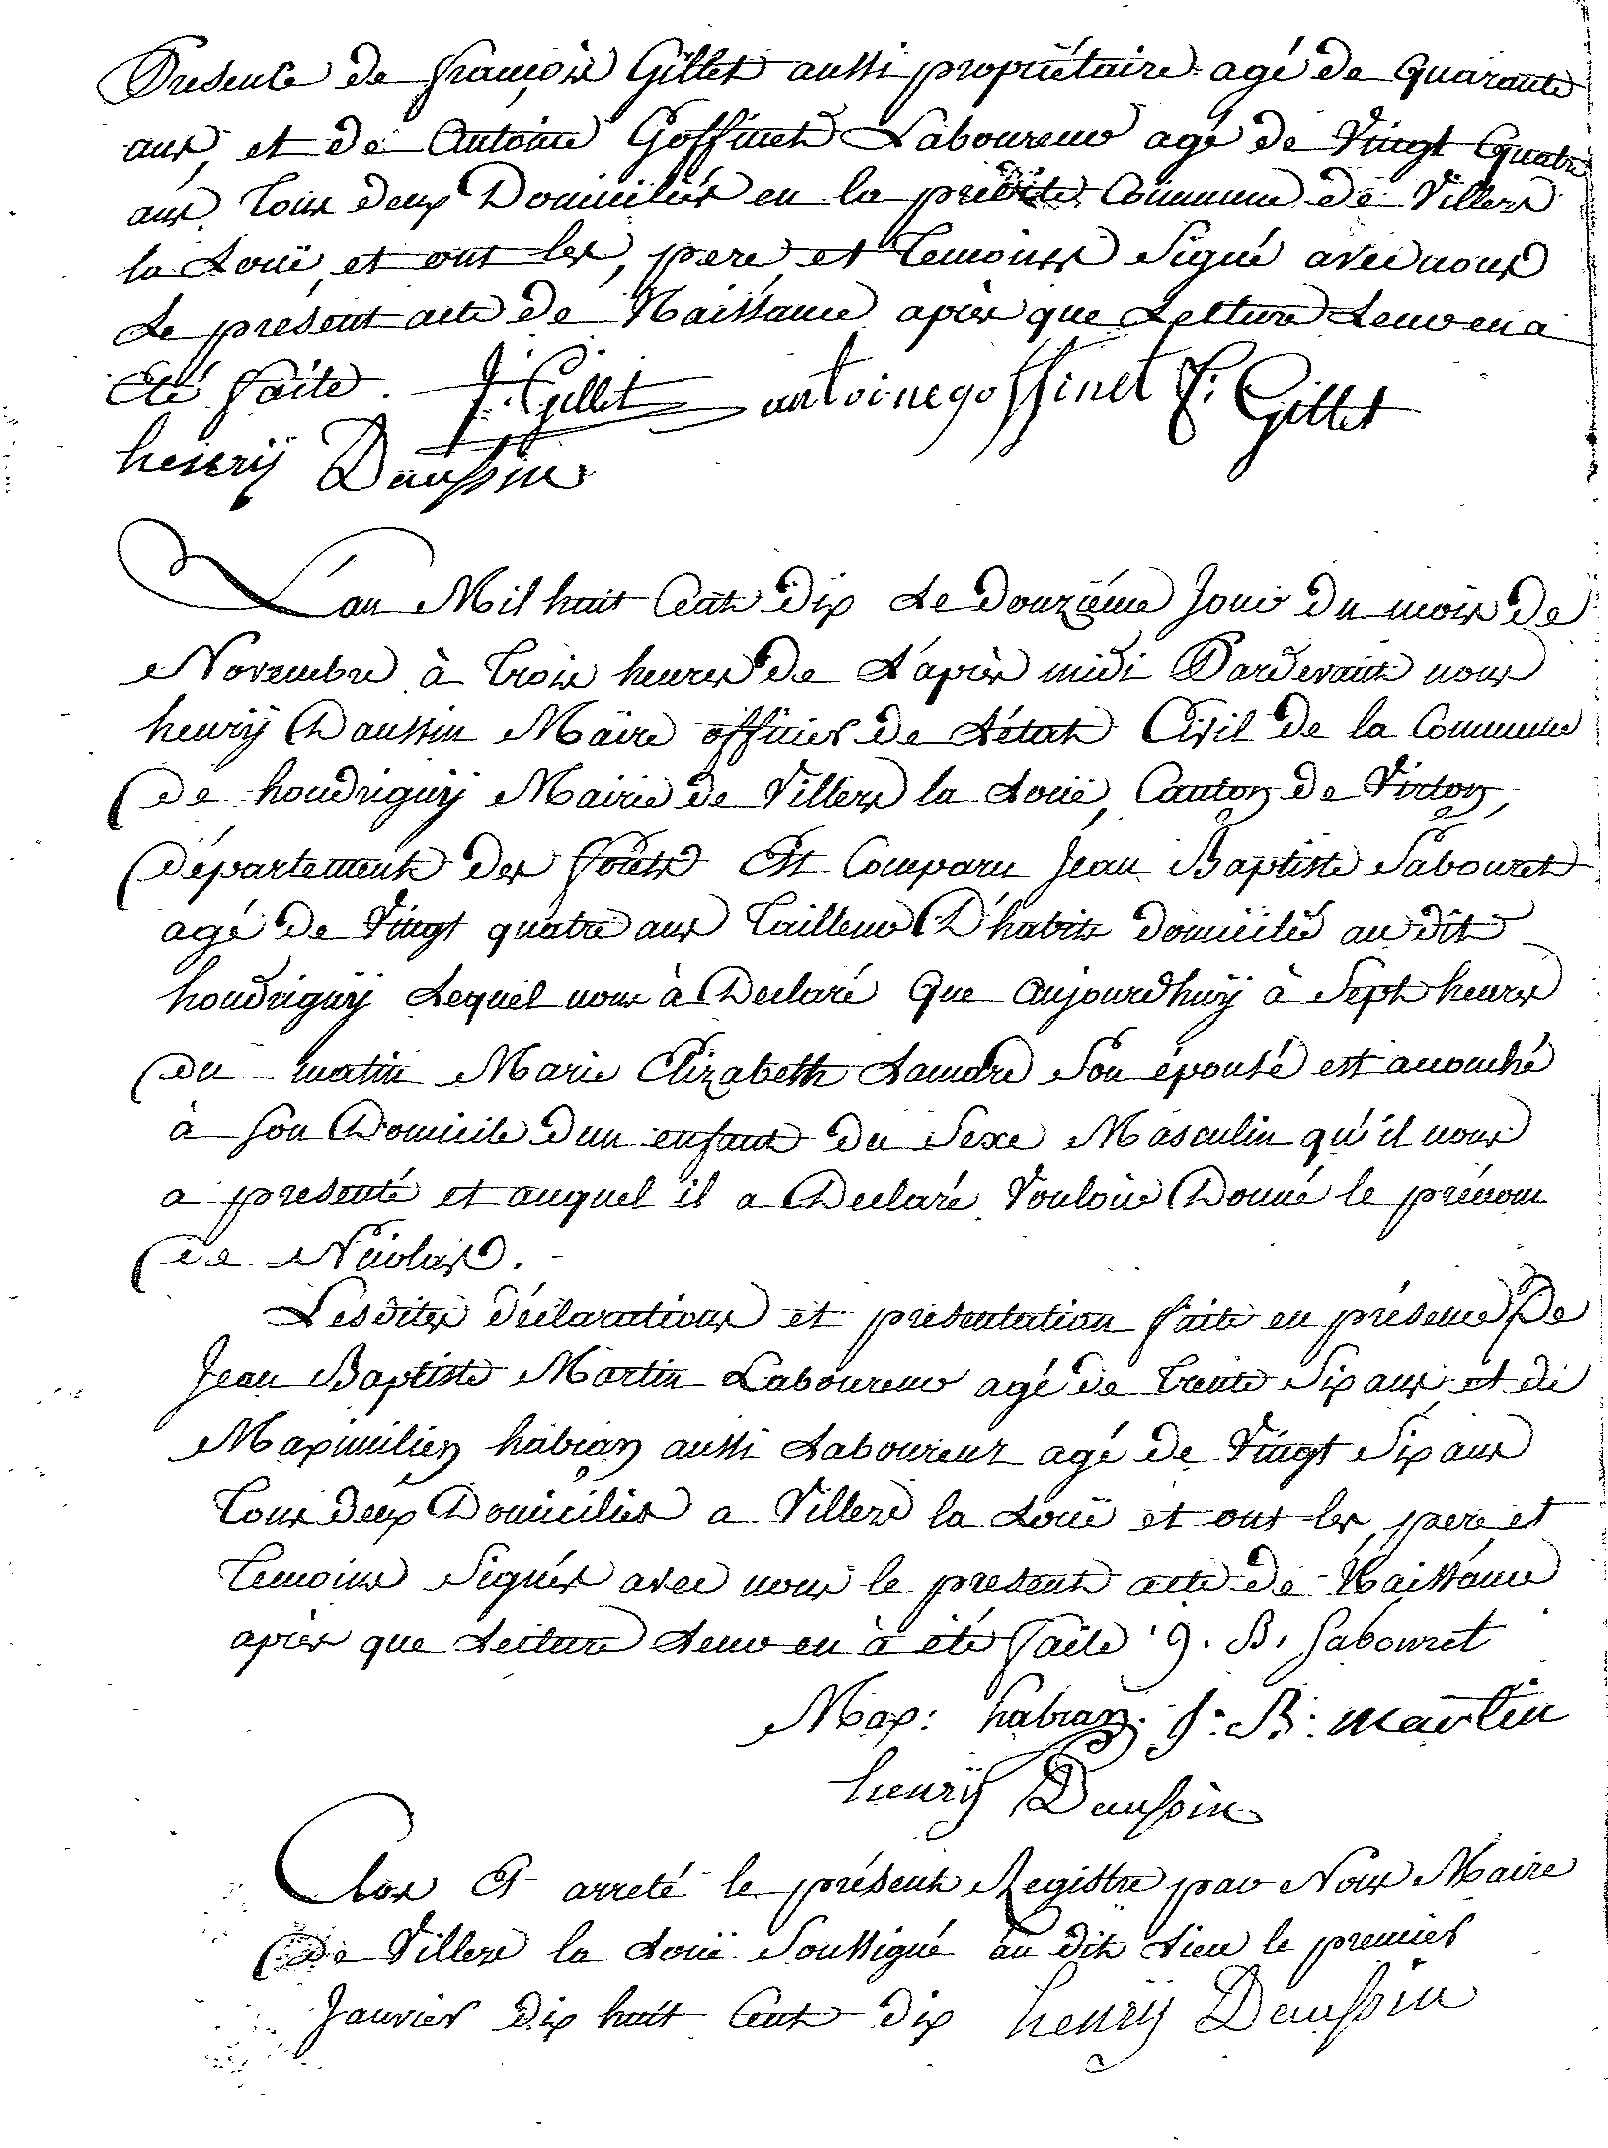 Presence de françois Gillet aussi propriétaire agé de quarante
ans, et de Antoine Goffinet Laboureur agé de Vingt Quatre
ans Tous deux Domiciliés en la predite Commune de Villers
la Loüe, et ont les, pere et Temoins Signé avec nous
Le présent acte de Naissance après que Lecture Leur en a
Eté faite. J. Gillet antoine goffinet F. Gillet
henrÿ Daussin
L'an Mil huit Cent dix Le douzième Jour du mois de
Novembre à trois heures de L'après midi Pardevant nous
henrÿ Daussin Maire officier de L'état Civil de la Commune
de houdrignÿ Mairie de Villers la Loüe, Canton de Virton,
département des forêts Est Comparu Jean Baptiste Sabouret
agé de Vingt quatre ans Tailleur D'habits domicilié au dit
houdrignÿ Lequel nous à Declaré Que Aujourdhuÿ à Sept heures
du matin Marie Elizabeth Lamore Son épousé est accouché
à Son Domicile dun enfant du Sexe Masculin qu'il nous
a presenté et auquel il a Declaré Vouloir Donné le prénom
de Nicolas.
Lesdites déclarations et presentation faite en présence De
Jean Baptiste Martin Laboureur agé de trente Six ans, et de
Maximilien habran aussi Laboureur agé de Vingt Six ans
Tous deux Domiciliés a Villers la Loüe et ont les pere et
Temoins Signés avec nous le present acte de Naissance
après que Lecture Leur en à été faite J. B. Sabouret
Max: habran. J. B. martin
henrÿ Daussin
Clos Et arreté le présent Registre par Nous Maire
de Villers la Loüe Soussigné au dit Lieu le premier
Janvier dix huit Cent dix henrÿ Daussin